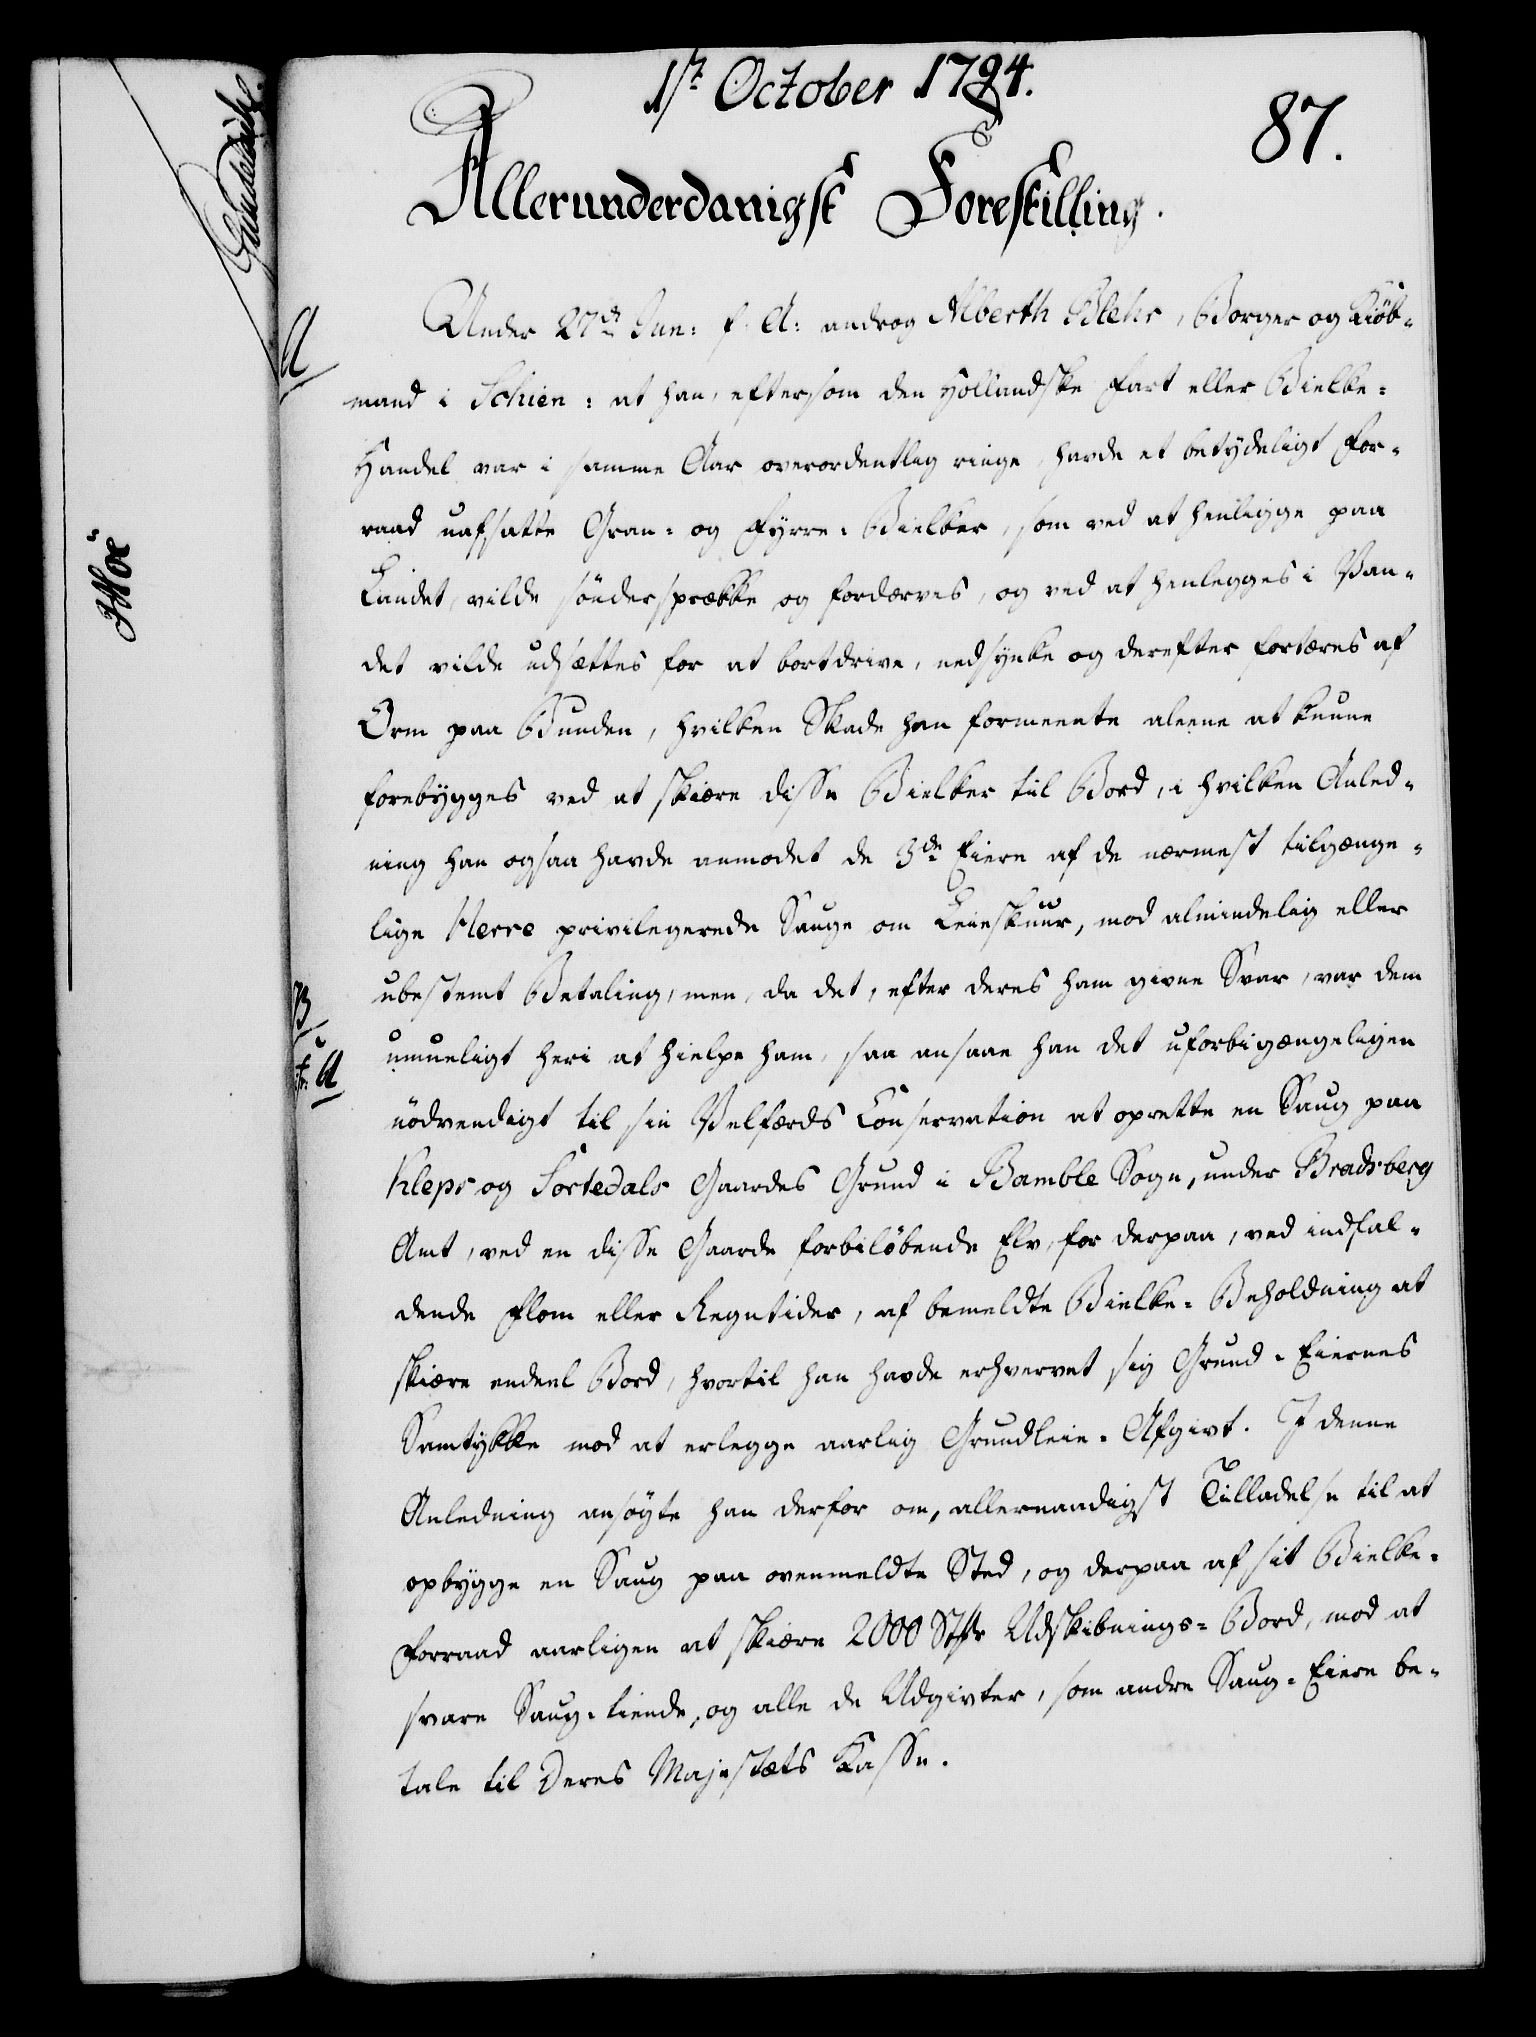 1st October 1794.
87.
Allerunderdanigst Forestilling.
A
Under 27de Jun: f. A: androg Alberth Blehr, Borger og Kiöb-
mand i Schien: at han, eftersom den Hollandske Fart eller Bielke-
Handel var i samme Aar overordentlig ringe, havde et betydeligt For-
raad uafsatte Gran- og Fyrre-Bielker, som ved at henligge paa
Landet, vilde söndersprække og fordærves, og ved at henlegges i Van-
det vilde udsættes for at bortdrive, nedsynke og derefter fortæres af
Orm paa Bunden, hvilken Skade han formeente aleene at kunne
forebygges ved at skiære disse Bielker til Bord, i hvilken Anled-
ning han ogsaa havde anmodet de 3de Eiere af de nærmest tilgænge-
lige Herre privilegerede Sauge om Leieskuur, mod almindelig eller
B
ubestemt Betaling, men, da det, efter deres ham givne Svar, var dem
A
umueligt heri at hielpe ham, saa ansaae han det uforbigængeligen
nödvendigt til sin Velfærds Conservation at oprette en Saug paa
Kleps og Sortedals Gaardes Grund i Bamble Sogn, under Bradsberg
Amt, ved en disse Gaarde forbilöbende Elv, for derpaa, ved indfal-
dende Flom eller Regntider, af bemeldte Bielke-Beholdning at
skiære endeel Bord, hvortil han havde erhvervet sig Grund-Eiernes
Samtykke mod at erlegge aarlig Grundleie-Afgivt. I denne
Anledning ansögte han derfor om, allernaadigst Tilladelse til at
opbygge en Saug paa ovenmeldte Sted, og derpaa af sit Bielke-
Forraad aarligen at skiære 2000 Stkr Udskibnings-Bord, mod at
svare Saug-tiende, og alle de Udgivter, som andre Saug-Eiere be-
tale til Deres Majestæts Kasse.